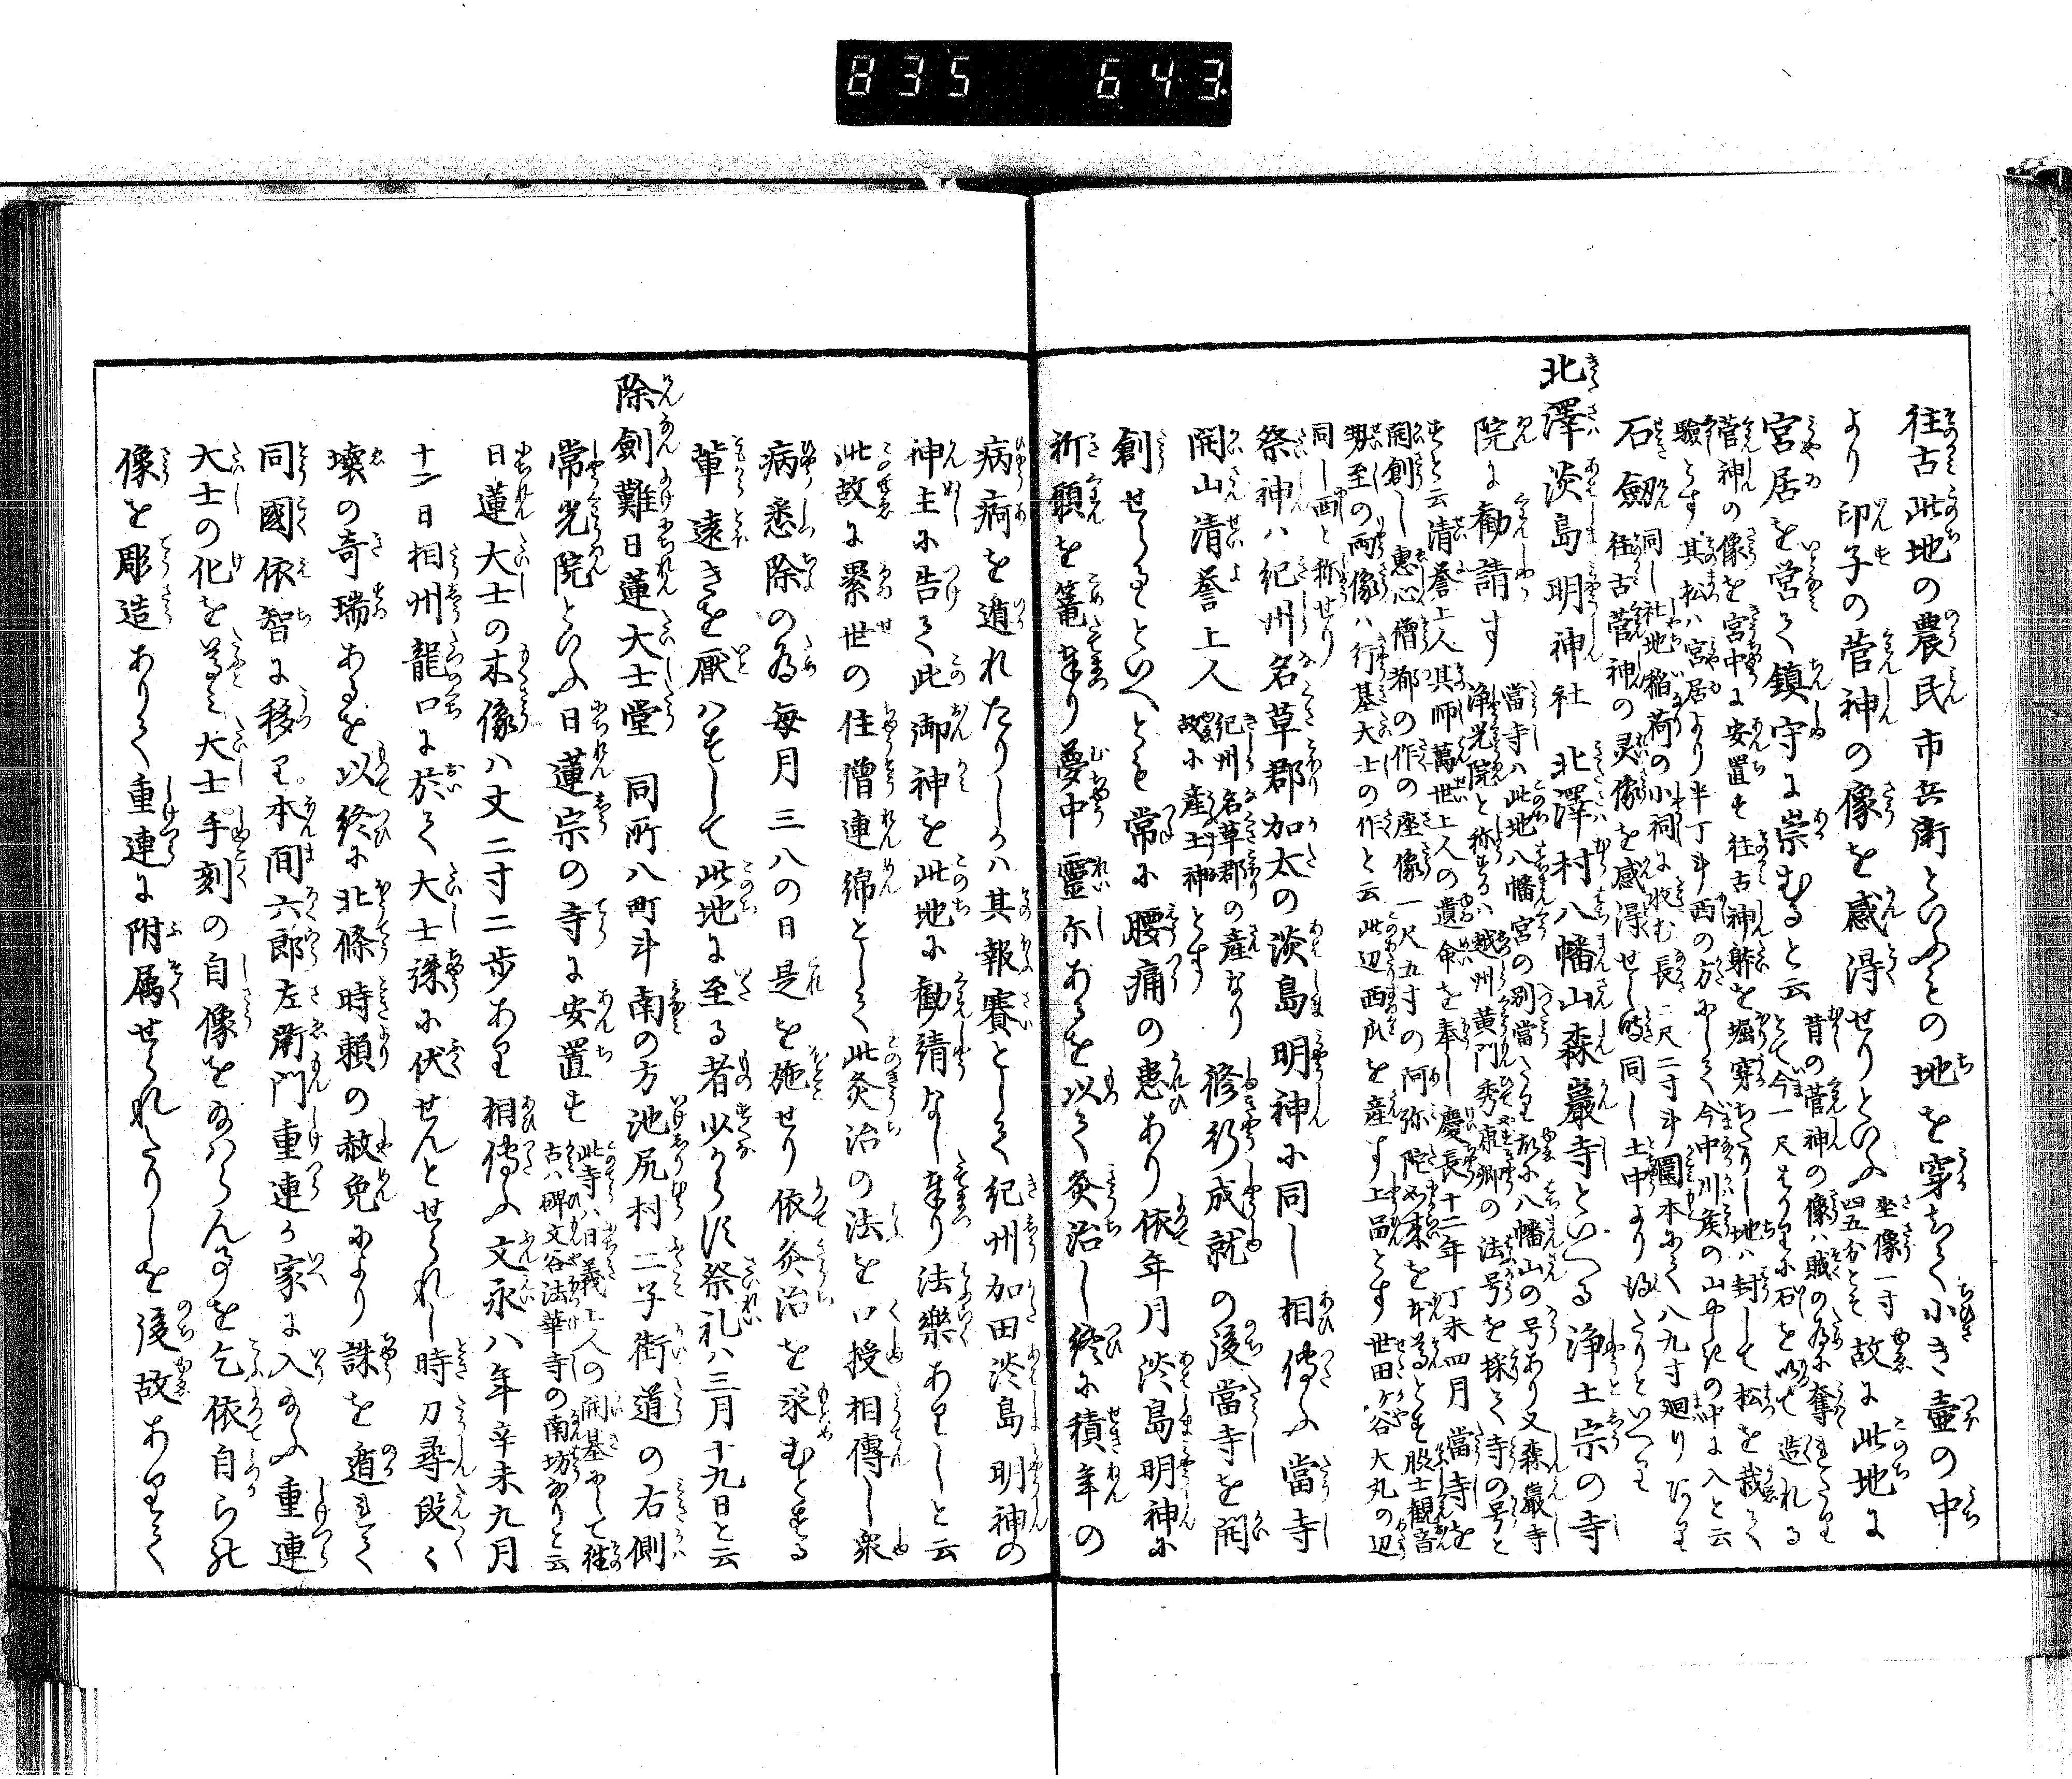 835 643
往古此地の農民市兵衛といふもの地を穿ちて小き壺の中
より印子の菅神の像を感得せりといふ坐像一寸四五分とそ故に此地に
宮居を営て鎮守に崇むると云昔の菅神の像ハ賊の為に奪れたり
とて今一尺はかりに石を以て造れる
菅神の像を宮中に安置す往古神躰を堀穿ちたりし地ハ封して松を栽て
験とす其松ハ宮居より半丁斗西の方にして今中川矦の山やしきの中に入と云
石劔同し社地稲荷の小祠に收む長二尺二寸斗圍本にて八九寸廻りあり
往古菅神の灵像を感得せし時同し土中より得たりといへり
北澤淡島明神社　北澤村八幡山森巖寺といへる浄土宗の寺
院に勸請す當寺ハ此地八幡宮の別當たり故に八幡山の号あり又森巖寺
浄光院と称するハ越州黄門秀康卿の法号を採て寺の号と
すと云清誉上人其師萬世上人の遺命を奉し慶長十二年丁未四月當寺を
開創し惠心僧都の作の座像一尺五寸の阿弥陀如来を本尊とす脇士観音
勢至の両像ハ行基大士の作と云此辺西瓜を産す上品とす世田ヶ谷大丸の辺
同し西と称せり
祭神ハ紀州名草郡加太の淡島明神に同し相傳ふ當寺
開山清誉上人紀州名草郡の産なり故に産土神とす修行成就の後當寺を開
創せらるといへとも常に腰痛の患あり依年月淡島明神に
祈願を篭奉り夢中靈示あるを以て灸治し終に積年の
病痾を遁れたりしかハ其報賽として紀州加田淡島明神の
神主に告て此御神を此地に勸請なし奉り法樂ありしと云
此故に累世の住僧連綿として此灸治の法を口授相傳し衆
病悉除の為毎月三八の日是を施せり依灸治を求むとする
輩遠きを厭ハすして此地に至る者少からす祭礼ハ三月十九日と云
除劍難日蓮大士堂　同所八町斗南の方池尻村二子街道の右側
常光院といふ日蓮宗の寺に安置す此寺ハ日義上人の開基にして往
古ハ碑文谷法華寺の南坊なりと云
日蓮大士の木像ハ丈二寸二歩あり相傳ふ文永八年辛未九月
十二日相州龍口に於て大士誅に伏せんとせられし時刀尋段々
壞の奇瑞あるを以終に北條時頼の赦免により誅を遁れて
同國依智に移り本間六郎左衛門重連か家に入給ふ重連
大士の化を尊み大士手刻の自像を給ハらん事を乞依自ら此
像を彫造ありて重連に附属せられたりしを後故ありて